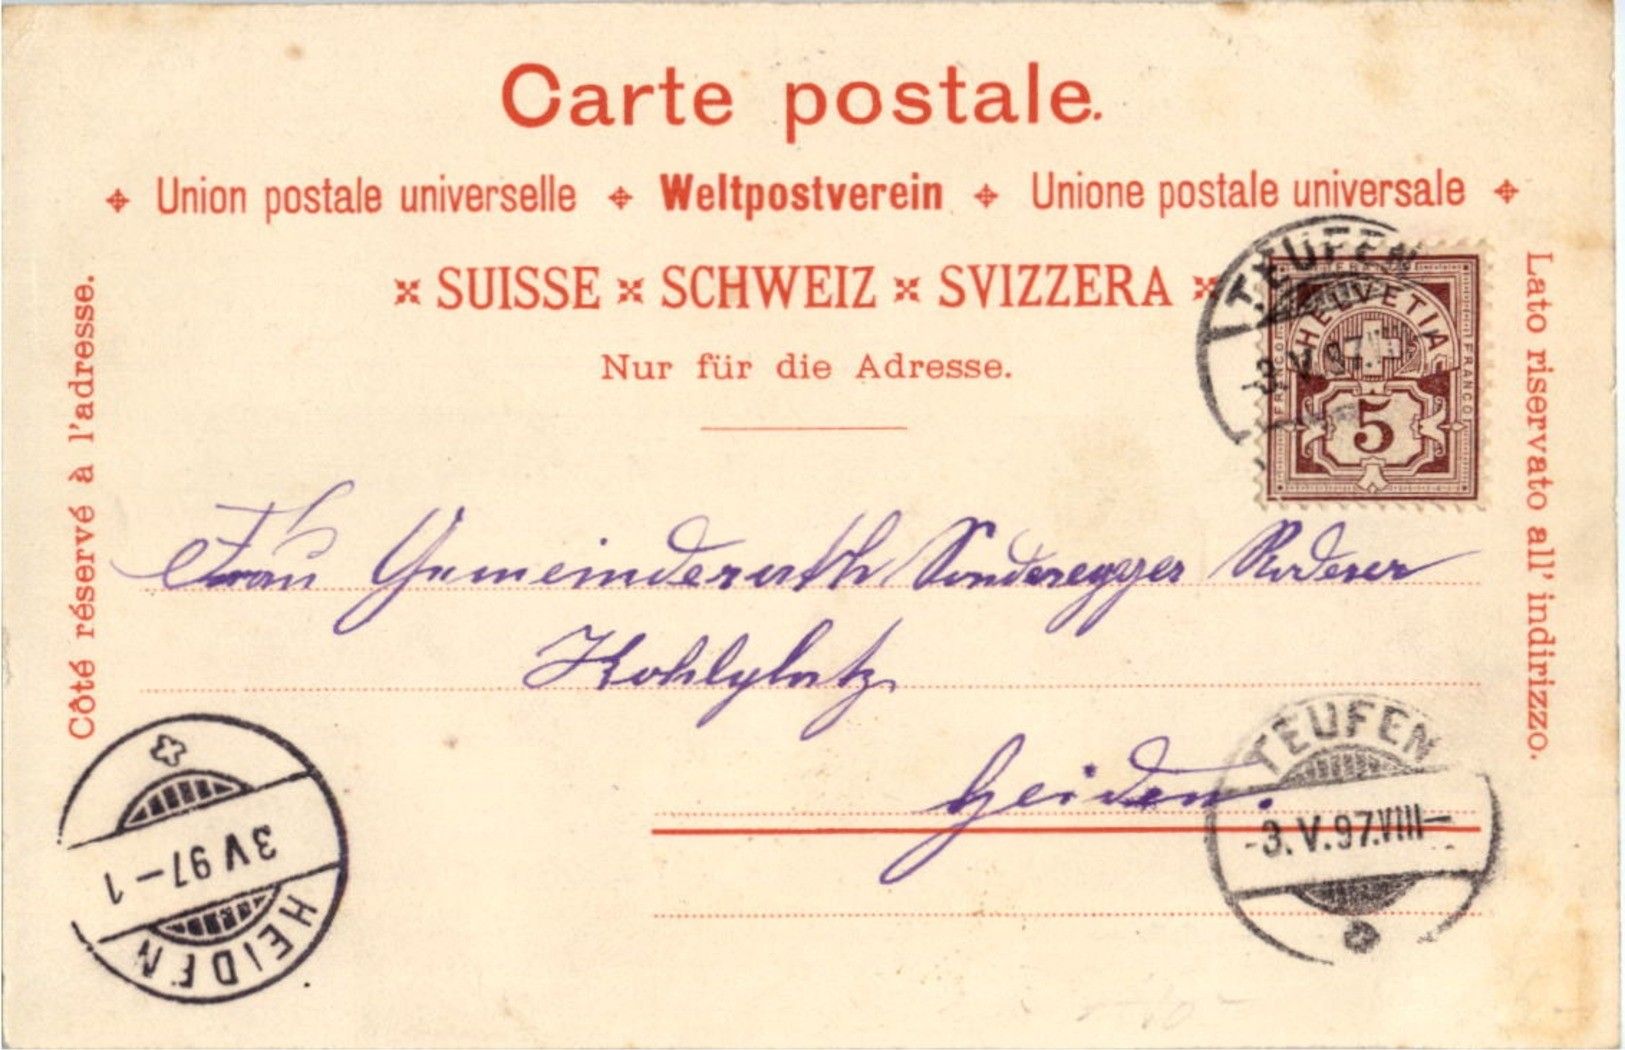 Carte postale.
Union postale universelle Weltpostverein Unione postale universale
SUISSE SCHWEIZ SVIZZERA
Nur für die Adresse.
Côté réservé à l'adresse.
Lato riservato all' indirizzo.
TEUFEN
-3.V.97.
HELVETIA
FRANCO FRANCO
5
Frau Gemeinderath Sonderegger Roderer
Kohlplatz
Heiden.
TEUFEN
-3.V.97.VIII-
HEIDEN
3 V 97-1